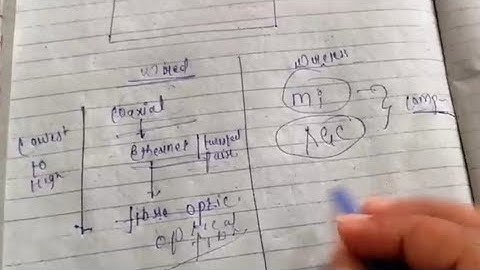 Wired
Coaxial
Lowest
to
High
Ethernet | Twisted
Pair
fibre optic
optical
Wireless
mi
comp-